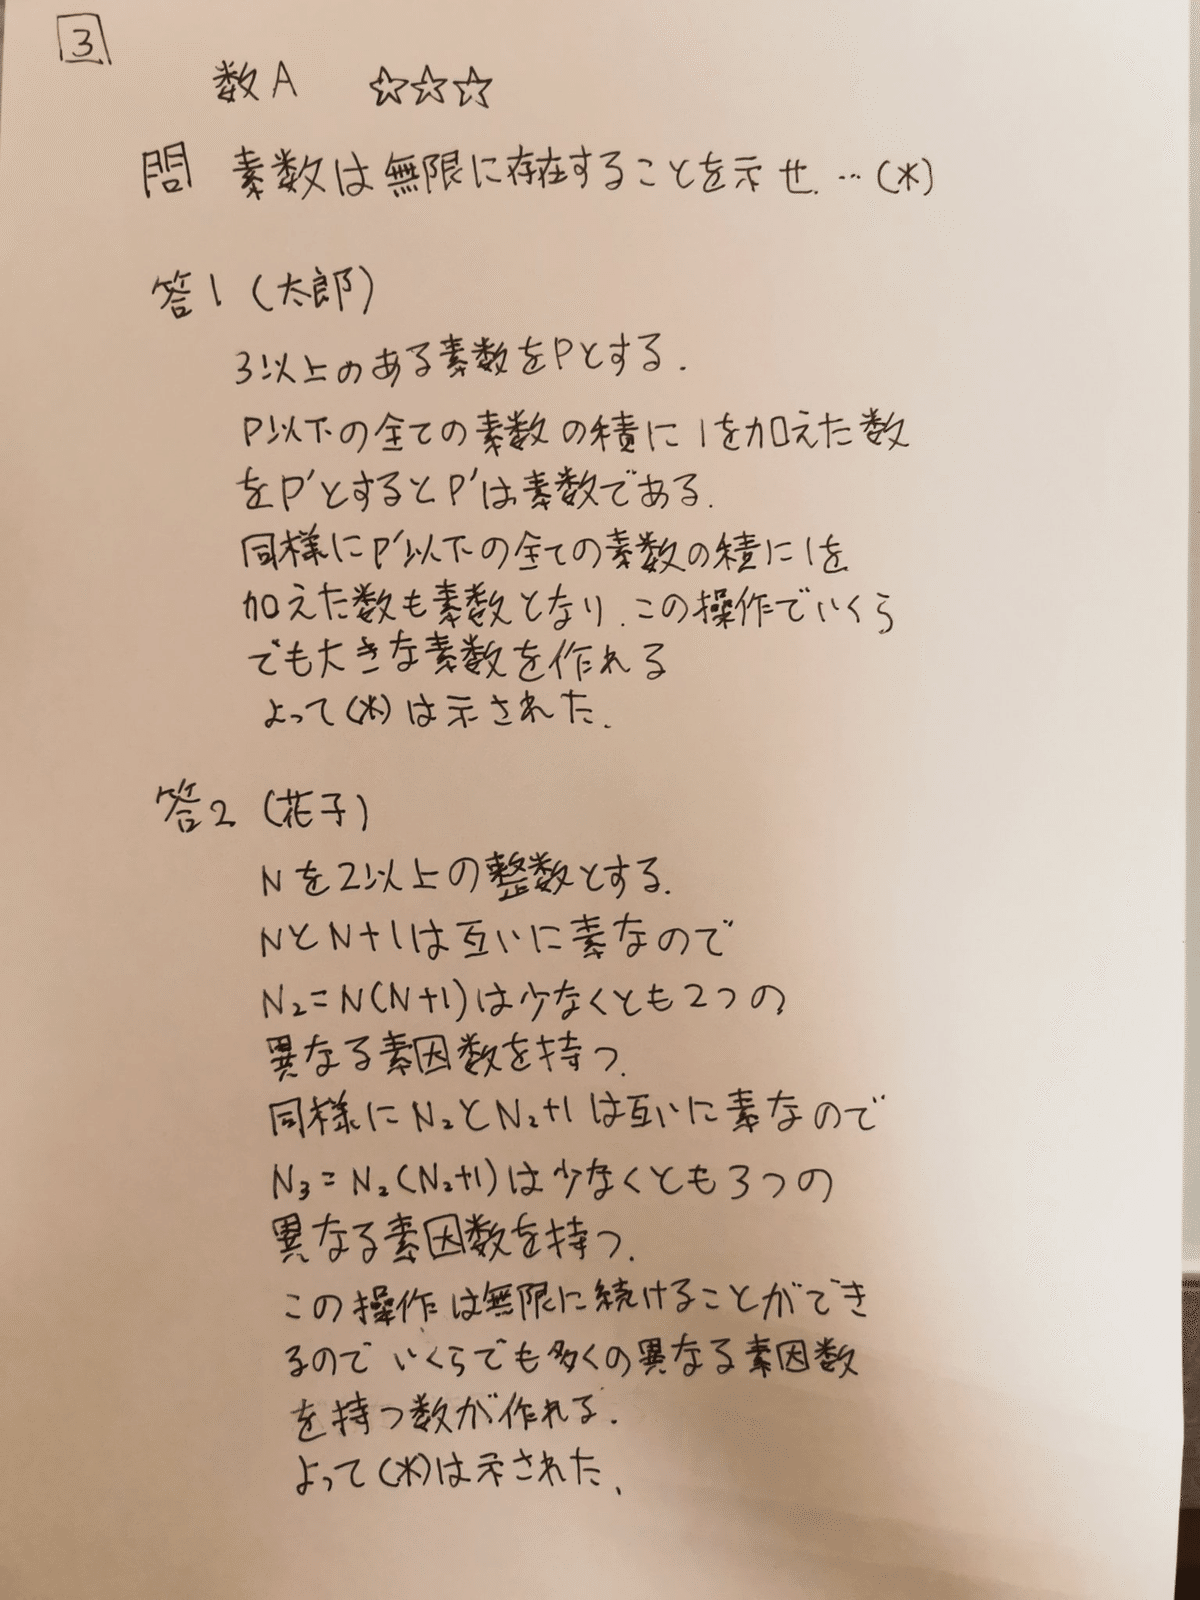 3
数A ☆☆☆
問 素数は無限に存在することを示せ. …(*)
答1 (太郎)
3以上のある素数をPとする.
P以下の全ての素数の積に1を加えた数
をP'とするとP'は素数である.
同様にP'以下の全ての素数の積に1を
加えた数も素数となり.この操作でいくら
でも大きな素数を作れる
よって(*)は示された.
答2 (花子)
Nを2以上の整数とする.
NとN+1は互いに素なので
N₂=N(N+1)は少なくとも2つの
異なる素因数を持つ.
同様にN₂とN₂+1は互いに素なので
N₃=N₂(N₂+1)は少なくとも3つの
異なる素因数を持つ.
この操作は無限に続けることができ
るのでいくらでも多くの異なる素因数
を持つ数が作れる.
よって(*)は示された.